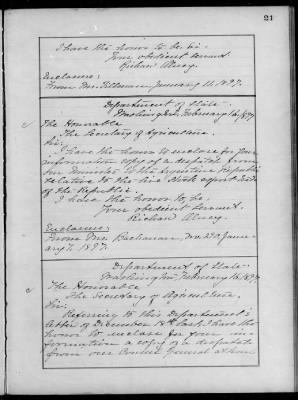 21
I have the honor to be, sir:
Your obedient servant,
Richard Olney.
Enclosure:
From Mr. January 11, 1897.
Department of State,
Washington, February 16, 1897.
The Honorable
The Secretary of Agriculture.
Sir:
I have the honor to enclose for your
information copy of a despatch from
our Minister to the Argentine Republic
relative to the live stock export trade
of the Republic.
I have the honor to be,
Your obedient servant,
Richard Olney.
Enclosure:
From Mr. Buchanan, No. 230, Janu-
ary 7, 1897.
Department of State,
Washington, February 16, 1897.
The Honorable
The Secretary of Agriculture.
Sir:
Referring to this Department's
letter of December 18th last, I have the
honor to enclose for your in-
formation a copy of a despatch
from our Consul General at